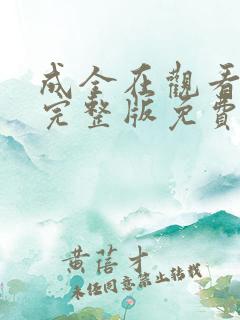 成全在觀看
完整版免費
黄蓓才
未经同意禁止转载